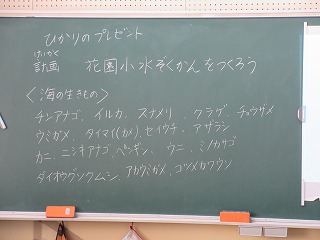 ひかりのプレゼント
けいかく
計画 花園小水ぞくかんをつくろう
〈海の生きもの〉
チンアナゴ、イルカ、スナメリ、クラゲ、チョウザメ
ウミガメ、タイマイ(カメ)、セイウチ、アザラシ
カニ、ニシキアナゴ、ペンギン、ウニ、ミノカサゴ
ダイオウグソクムシ、アカウミガメ、コツメカワウソ